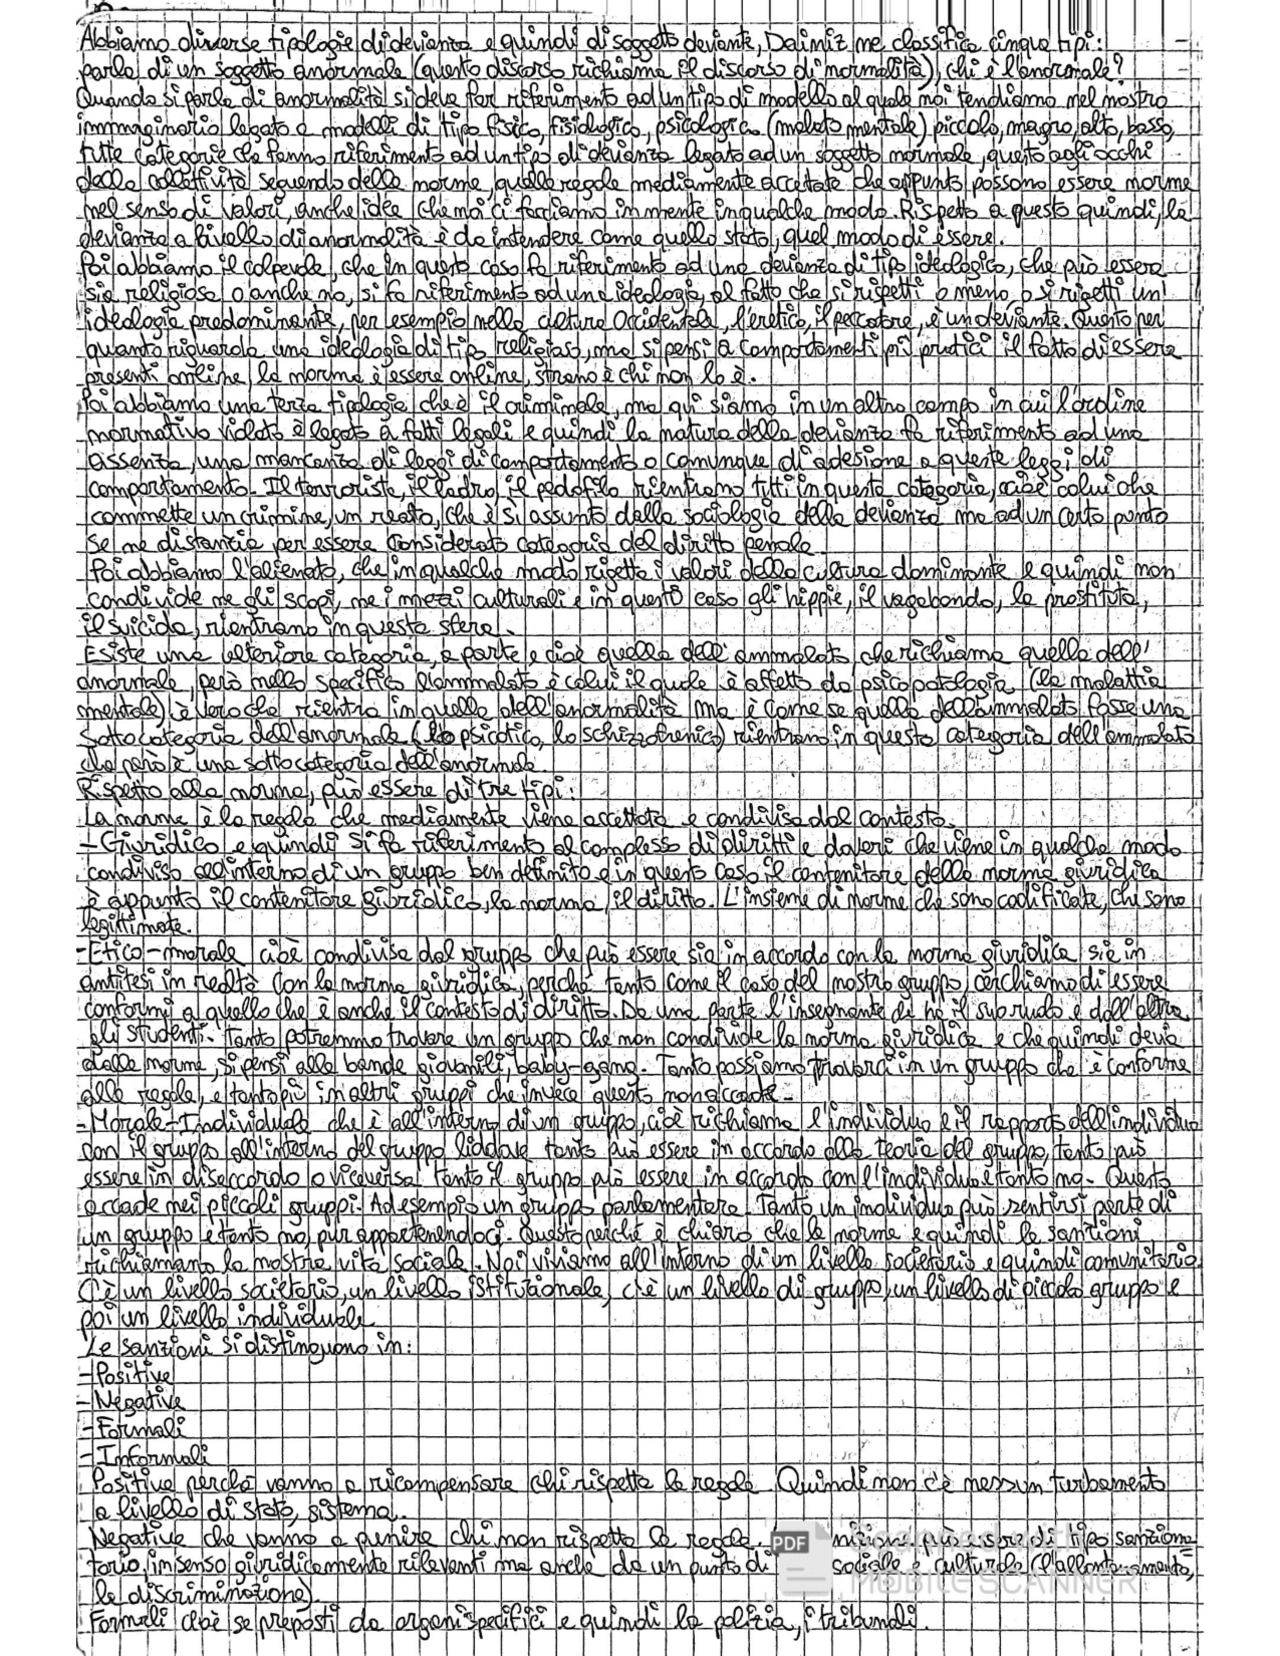 Abbiamo diverse tipologie di devianza e quindi di soggetto deviante, Dalimiz ne classifica cinque tipi:
parla di un soggetto anormale (questo discorso richiama il discorso di normalità), chi è l'anormale?
Quando si parla di anormalità si deve far riferimento ad un tipo di modello al quale noi tendiamo nel nostro
immmaginario legato a modelli di tipo fisico, fisiologico, psicologico (malato mentale) piccolo, magro, alto, basso,
tutte categorie che fanno riferimento ad un tipo di devianza legato ad un soggetto normale, questo agli occhi
della collettività seguendo delle norme, quelle regole mediamente accettate che appunto possono essere norme
nel senso di valori, anche idee che noi ci facciamo in mente in qualche modo. Rispetto a questo quindi, la
devianza a livello di anormalità è da intendere come quello stato, quel modo di essere.
Poi abbiamo il colpevole, che in questo caso fa riferimento ad una devianza di tipo ideologico, che può essere
sia religiosa o anche no, si fa riferimento ad una ideologia, al fatto che si rispetti o meno o si rigetti un'
ideologia predominante, per esempio nella cultura Occidentale, l'eretico, il peccatore, è un deviante. Questo per
quanto riguarda una ideologia di tipo religioso, ma si pensi a comportamenti più pratici il fatto di essere
presenti online, la norma è essere online, strano è chi non lo è.
Poi abbiamo una terza tipologia che è il criminale, ma qui siamo in un altro campo in cui l'ordine
normativo violato è legato a fatti legali e quindi la natura della devianza fa riferimento ad una
assenza, una mancanza di leggi di comportamento o comunque di adesione a queste leggi di
comportamento. Il terrorista, il ladro, il pedofilo rientrano tutti in questa categoria, cioè colui che
commette un crimine, un reato, che è si assunto dalla sociologia della devianza ma ad un certo punto
se ne distanzia per essere considerato categoria del diritto penale.
Poi abbiamo l'alienato, che in qualche modo rigetta i valori della cultura dominante e quindi non
condivide ne gli scopi, ne i mezzi culturali e in questo caso gli hippie, il vagabondo, la prostituta,
il suicida, rientrano in questa sfera.
Esiste una ulteriore categoria, a parte, e cioè quella dell'ammalato che richiama quella dell'
anormale, però nello specifico l'ammalato è colui il quale è affetto da psicopatologia (la malattia
mentale) è vero che rientra in quella dell'anormalità ma è come se quella dell'ammalato fosse una
sottocategoria dell'anormale (lo psicotico, lo schizzofrenico) rientrano in questa categoria dell'ammalato
che però è una sottocategoria dell'anormale.
Rispetto alla norma, può essere di tre tipi:
La norma è la regola che mediamente viene accettata e condivisa dal contesto.
- Giuridico e quindi si fa riferimento al complesso di diritti e doveri che viene in qualche modo
condiviso all'interno di un gruppo ben definito e in questo caso il contenitore della norma giuridica
è appunto il contenitore giuridico, la norma, il diritto. L'insieme di norme che sono codificate, che sono
legittimate.
- Etico-morale cioè condivisa dal gruppo che può essere sia in accordo con la norma giuridica sia in
antitesi in realtà con la norma giuridica, perché tanto come il caso del nostro gruppo, cerchiamo di essere
conformi a quello che è anche il contesto di diritto. Da una parte l'insegnante che ha il suo ruolo e dall'altra
gli studenti. Tanto potremmo trovare un gruppo che non condivide la norma giuridica e che quindi devia
dalle norme, si pensi alle bande giovanili, baby-gang. Tanto possiamo trovarci in un gruppo che è conforme
alle regole, e tanto più in altri gruppi che invece questo non accade.
- Morale-Individuale che è all'interno di un gruppo, cioè richiama l'individuo e il rapporto dell'individuo
con il gruppo all'interno del gruppo laddove tanto può essere in accordo alla teoria del gruppo, tanto può
essere in disaccordo o viceversa tanto il gruppo può essere in accordo con l'individuo e tanto no. Questo
accade nei piccoli gruppi. Ad esempio un gruppo parlamentare. Tanto un individuo può sentirsi parte di
un gruppo e tanto no, pur appartenendoci. Questo perché è chiaro che le norme e quindi le sanzioni
richiamano la nostra vita sociale. Noi viviamo all'interno di un livello societario e quindi comunitario.
C'è un livello societario, un livello istituzionale, c'è un livello di gruppo, un livello di piccolo gruppo e
poi un livello individuale.
Le sanzioni si distinguono in:
- Positive
- Negative
- Formali
- Informali
Positive perché vanno a ricompensare chi rispetta le regole. Quindi non c'è nessun turbamento
a livello di stato, sistema.
Negative che vanno a punire chi non rispetta le regole. può essere di tipo sanziona-
torio, in senso giuridicamente rilevanti ma anche da un punto di sociale e culturale (l'allontanamento,
la discriminazione).
Formali cioè se preposti da organi specifici e quindi la polizia, i tribunali.
PDF
Scanned with
MOBILE SCANNER